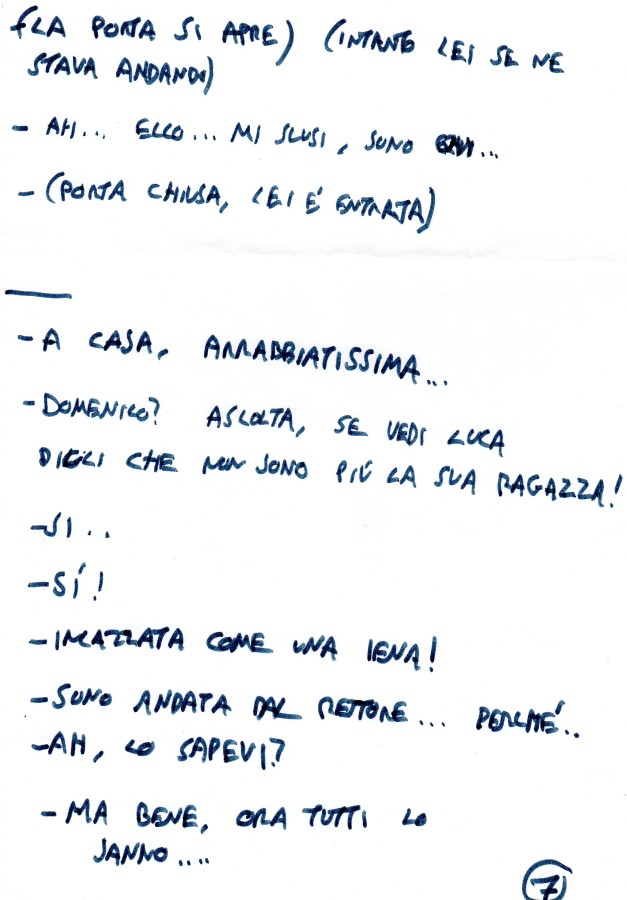 (LA PORTA SI APRE) (INTANTO LEI SE NE
STAVA ANDANDO)
- AH... ECCO... MI SCUSI, SONO
- (PORTA CHIUSA, LEI É ENTRATA)
- A CASA, ARRABBIATISSIMA...
- DOMENICO? ASCOLTA, SE VEDI LUCA
DIGLI CHE NON SONO PIÚ LA SUA RAGAZZA!
- SI..
- SÍ!
- INCAZZATA COME UNA IENA!
- SONO ANDATA DAL RETTORE... PERCHÉ..
- AH, LO SAPEVI?
- MA BENE, ORA TUTTI LO
SANNO....
7